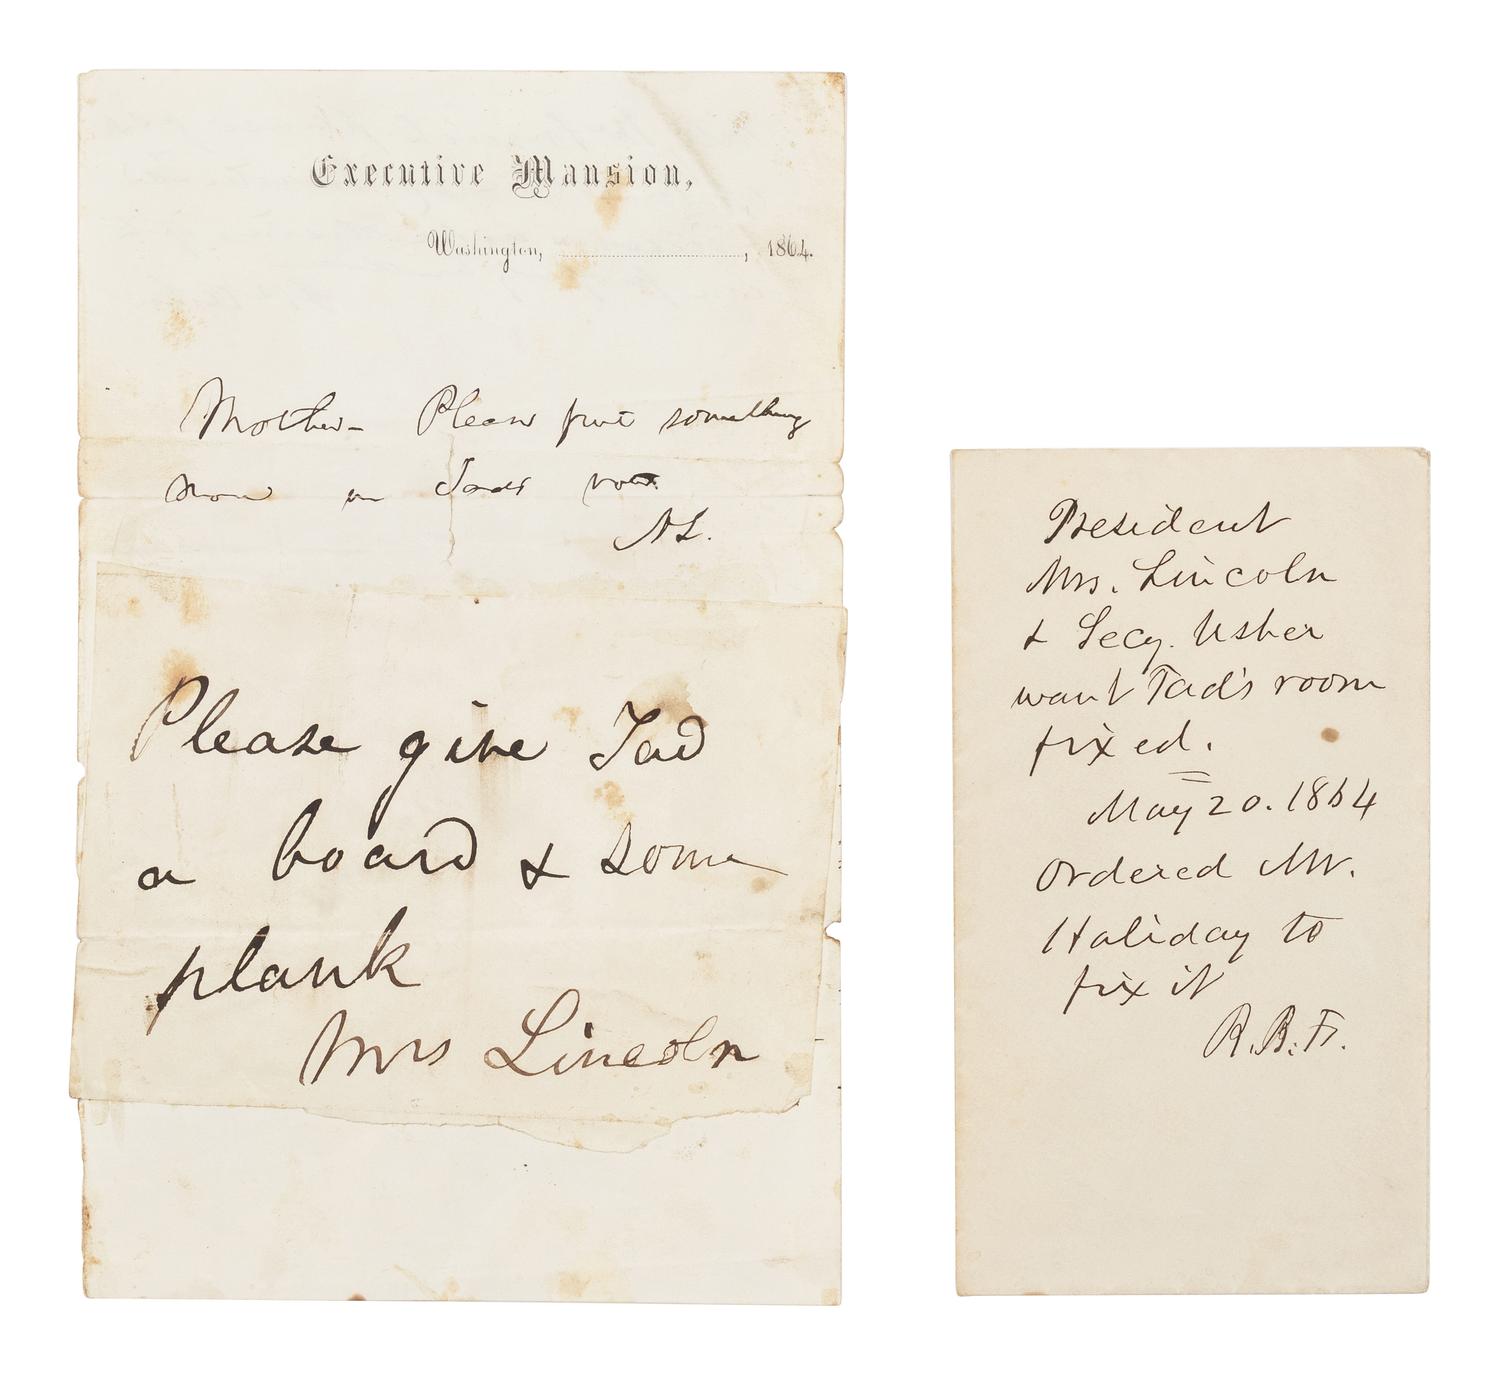 Executive Mansion,
Washington, , 1864.
Mother- Please put something
more on Tads note
A.L.
Please give Tad
a board & some
plank
Mrs Lincoln
President
Mrs. Lincoln
& Secy. Usher
want Tad's room
fixed.
May 20. 1864
Ordered Mr.
Haliday to
fix it
B.B.F.